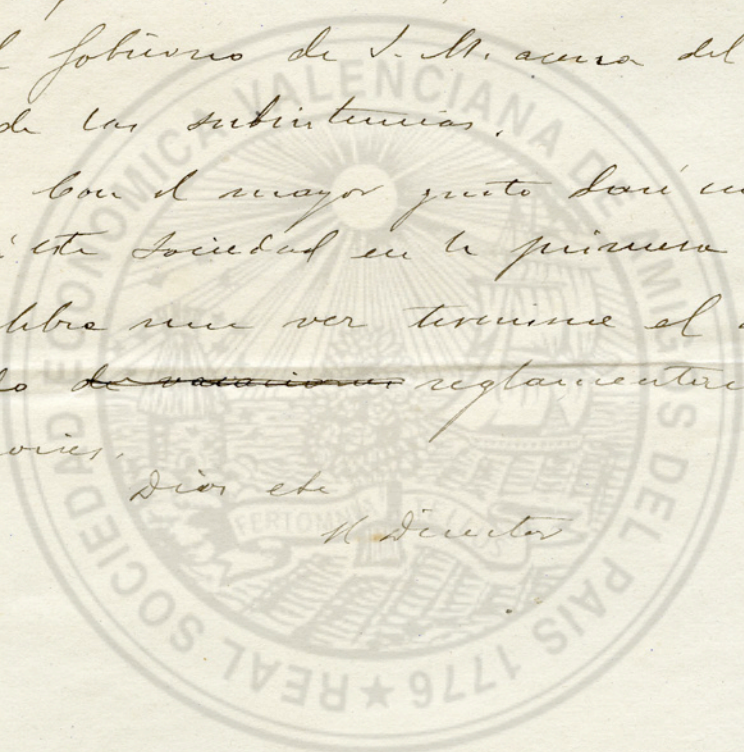 l Gobierno de S. M. acerca del
de las subsistencias.
Con el mayor gusto daré cu
á esta Sociedad en la primera
lebre una vez termine el
do de vacaciones reglamentari
ones.
Dios etc
El Director
REAL SOCIEDAD ECONOMICA VALENCIANA DE AMIGOS DEL PAIS 1776